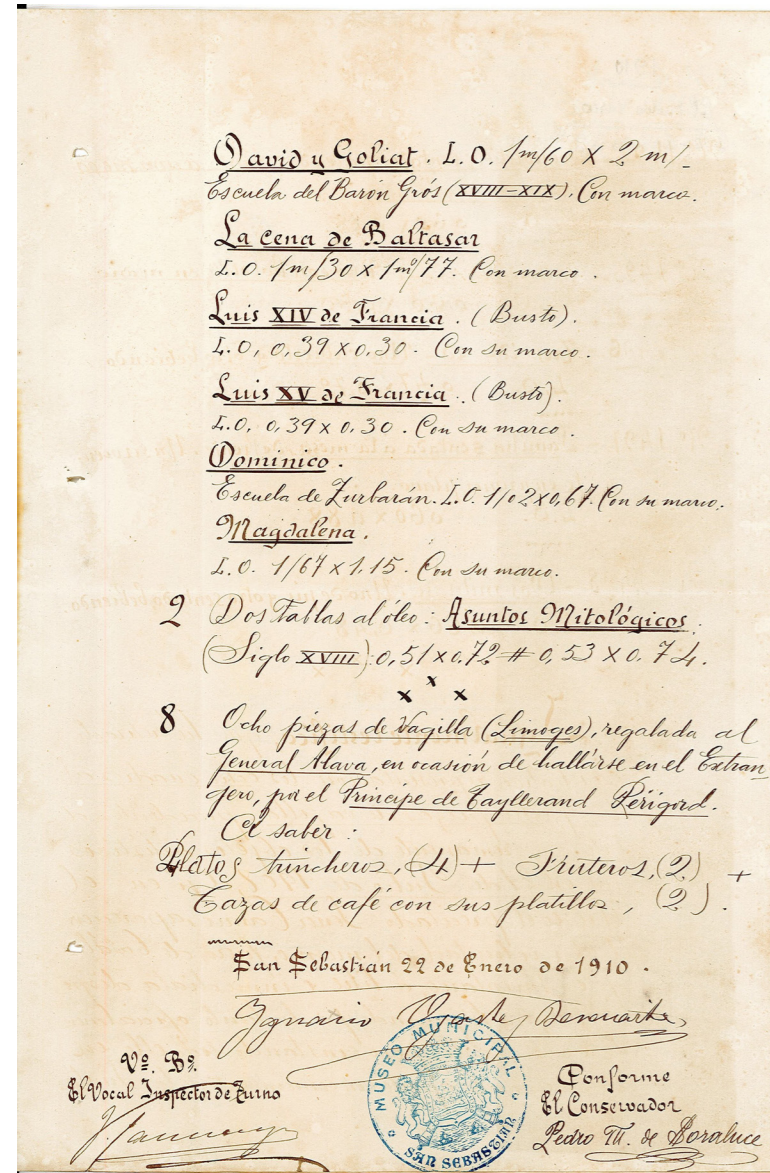 David y Goliat. L.O. 1m/60 X 2 m/-
Escuela del Barón Grós (XVIII-XIX). Con marco.
La cena de Baltasar
L.O. 1m/30 x 1m/77. Con marco.
Luis XIV de Francia. (Busto).
L.O, 0,39 X 0.30. Con su marco.
Luis XV de Francia. (Busto).
L.O, 0,39 x 0,30. Con su marco.
Dominico.
Escuela de Zurbarán. L.O. 1/02 X 0,67. Con su marco.
Magdalena.
L.O. 1/67 x 1.15. Con su marco.
2 Dos Tablas al óleo: Asuntos Mitológicos.
(Siglo XVIII) 0,51 x 0.72 # 0,53 X 0.74.
x x x
8 Ocho piezas de Vagilla (Limoges), regalada al
General Alava, en ocasión de hallárse en el Extran
gero, por el Principe de Tayllerand Périgord.
A saber:
Platos trincheros, (4) + Fruteros, (2) +
Tazas de café con sus platillos, (2).
San Sebastián 22 de Enero de 1910.
Ignacio
Vº. Bº.
El Vocal Inspector de Turno
MUSEO MUNICIPAL
SAN SEBASTIÁN
Conforme
El Conservador
Pedro M. de Soraluce